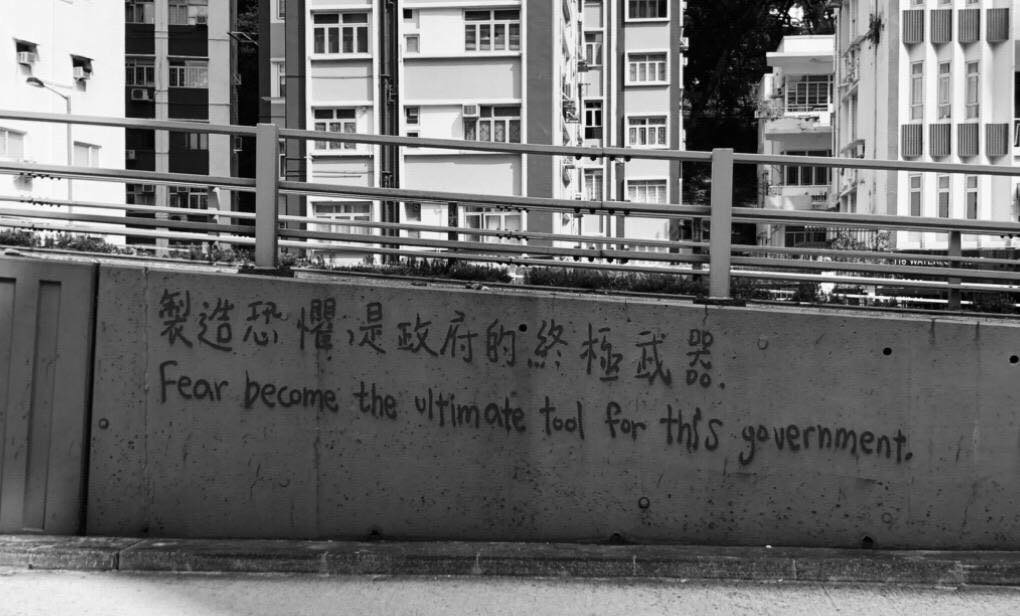 製造恐懼,是政府的終極武器.
Fear become the ultimate tool for this government.